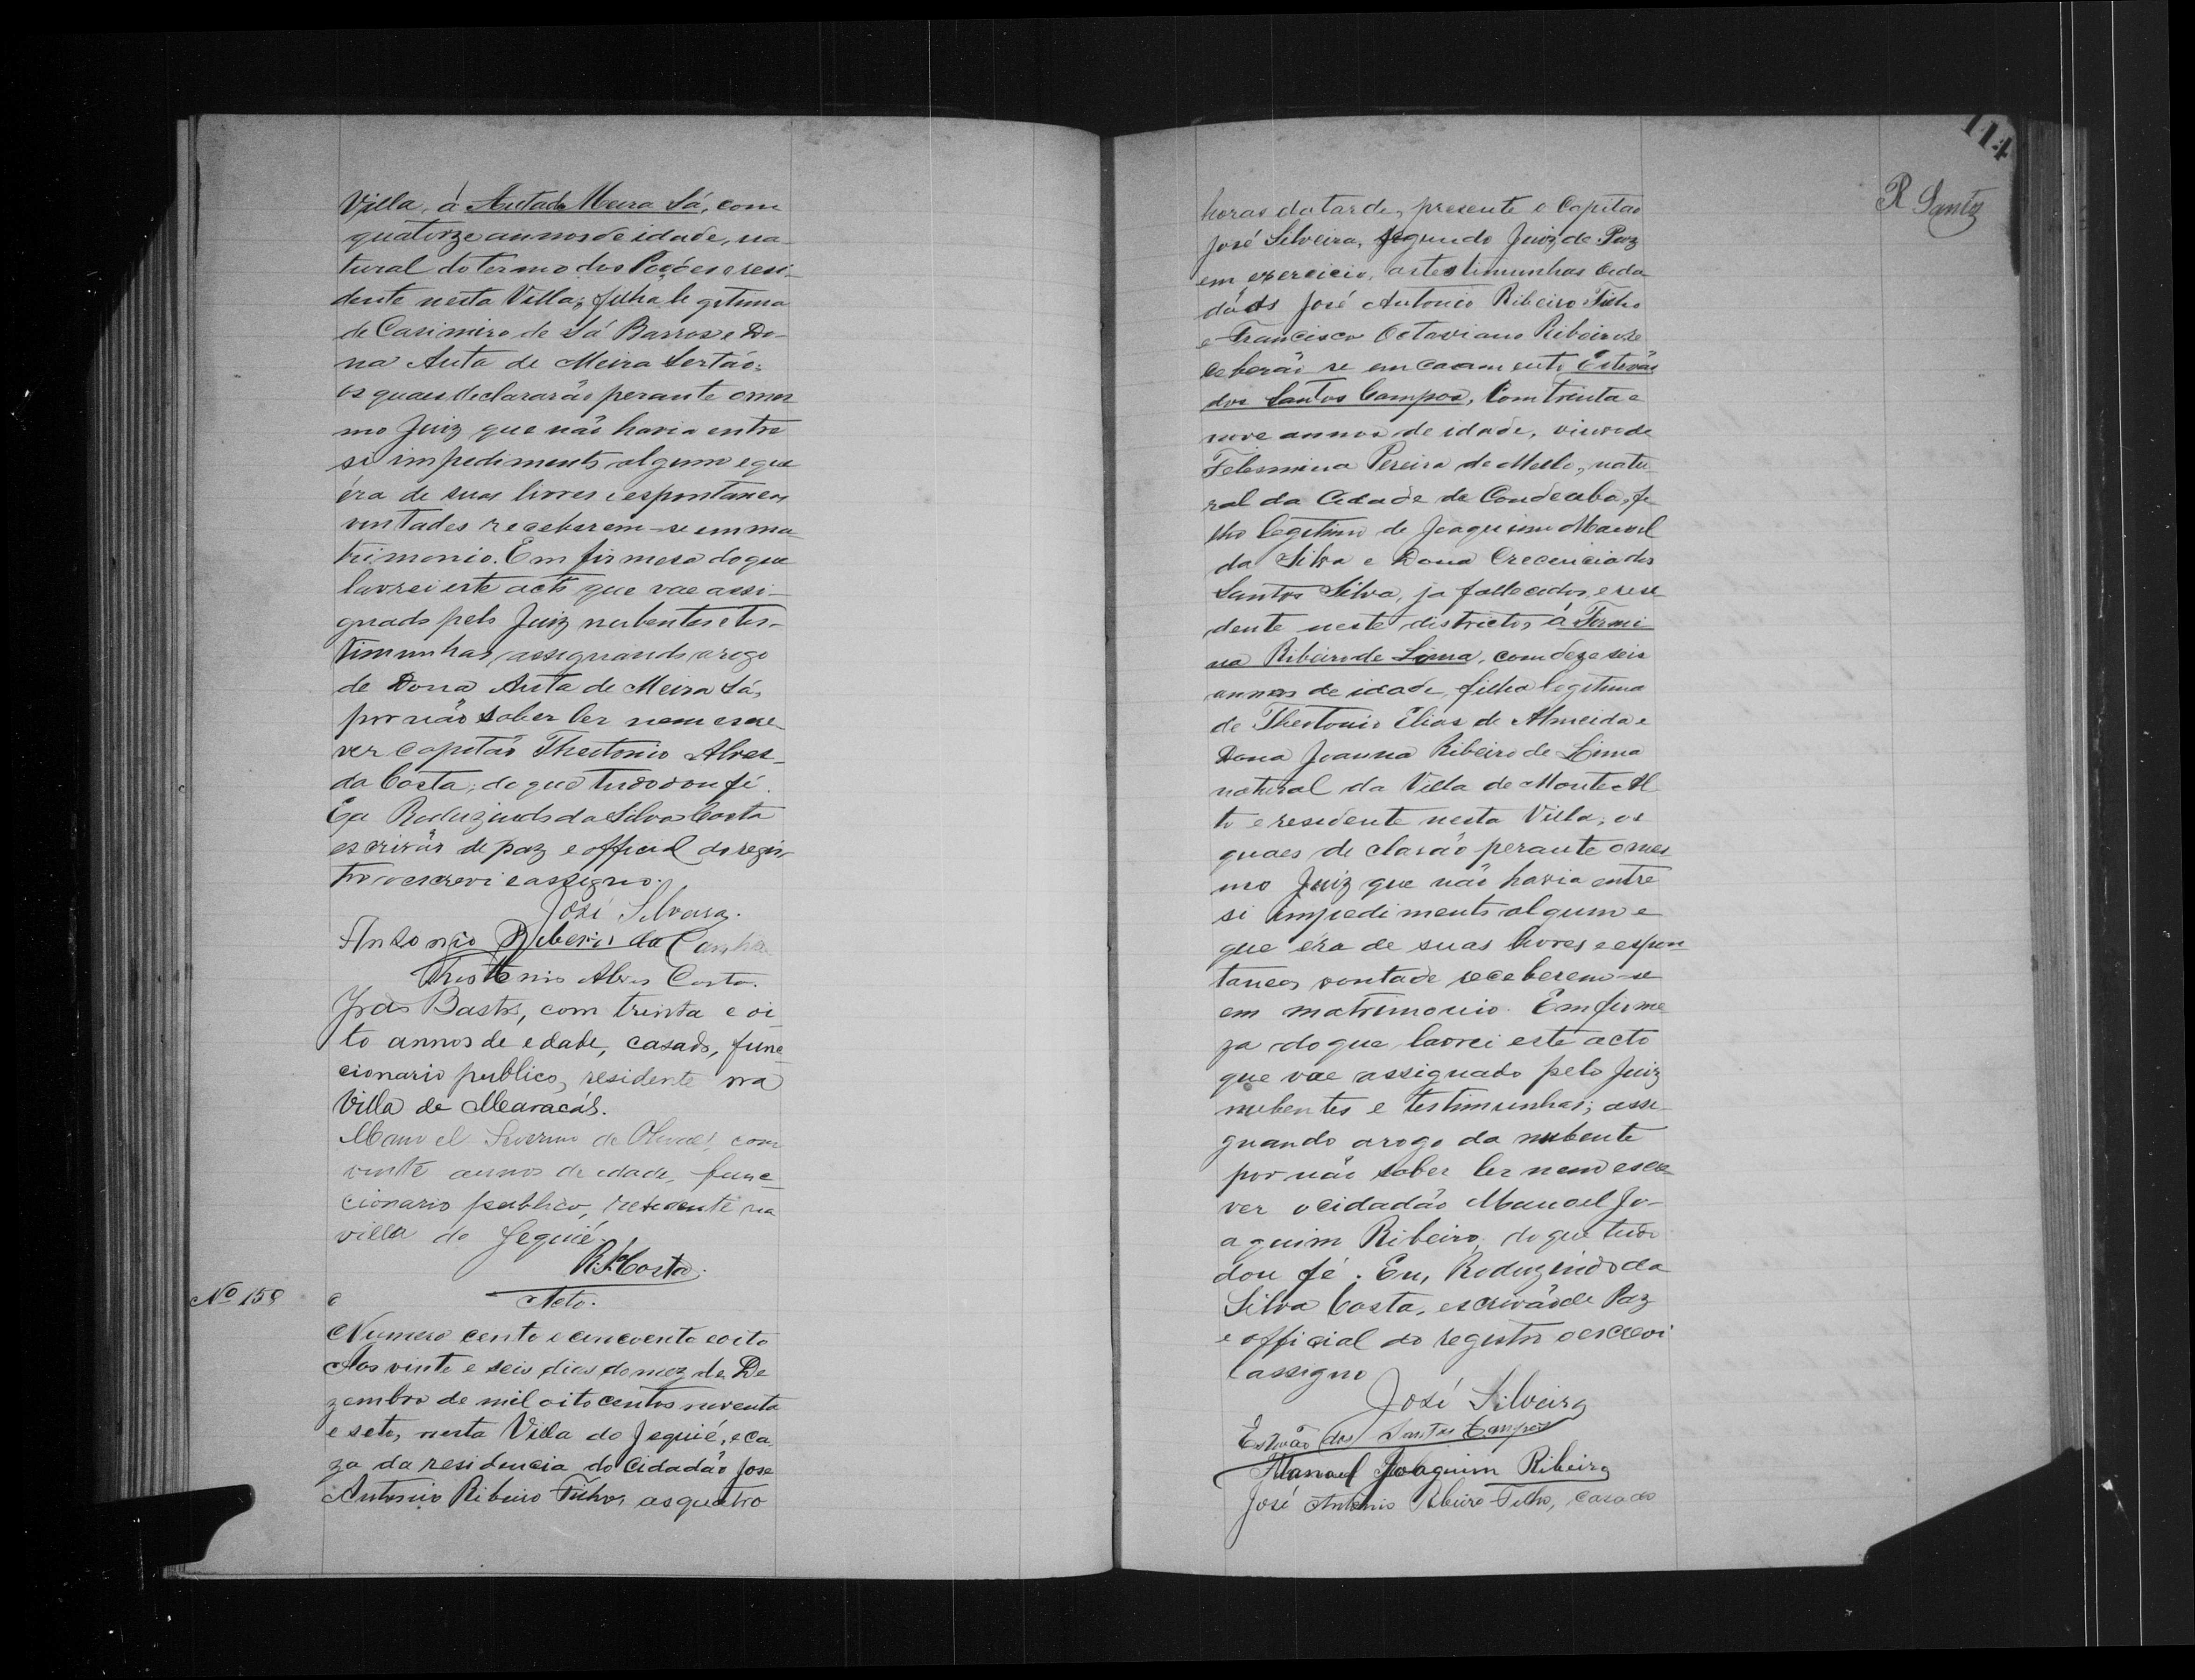 Villa, á Auta de Meira Sá, com
quatorze annos de idade, na-
tural do termo dos Poções e resi-
dente nesta Villa, filha legitima
de Casimiro de Sá Barros e Do-
na Auta de Meira Sertão;
os quaes declararão perante o mes
mo Juiz que não havia entre
si impedimento algum e que
éra de suas livres e espontaneas
vontades receberem-se em ma
trimonio. Em firmesa do que
lavrei este acto que vae assi-
gnado pelo Juiz nubentes e tes-
timunhas, assignando a rogo
de Dona Auta de Meira Sá,
por não saber ler nem escre-
ver capitão Theotonio Alves
da Costa, do que tudo dou fé.
Eu Reduzindo da Silva Costa
escrivão de paz e official do regis-
tro o escrevi e assigno.
José Silveira.
Antonio Ribeiro da Cunha
Theotonio Alves Costa.
Bastos, com trinta e oi
to annos de edade, casado, func
cionario publico, residente na
Villa de Maracás.
Manoel Severino de Oliveira, com
vinte annos de edade, func-
cionario publico, residente na
villa de Jequié.
R. S. Costa.
Nº 158
Acto.
Numero cento e cincoenta e oito
Aos vinte e seis dias do mez de De
zembro de mil oito centos noventa
e sete, nesta Villa do Jequié, e ca
za da residencia do Cidadão Jose
Antonio Ribeiro Filho, as quatro
114
R Santos
horas da tarde, presente o Capitão
José Silveira, segundo Juiz de Paz
em exercicio, as testimunhas Cida
dãos José Antonio Ribeiro Filho
e Francisco Octaviano Ribeiro, re
ceberão se em casamento Estevão
dos Santos Campos, com trinta e
nove annos de idade, viuvo de
Felesmina Pereira de Mello, natu
ral da Cidade de Condeuba, fi
lho legitimo de Joaquim Manoel
da Silva e Dona Crecencia dos
Santos Silva, ja fallecidos, e resi
dente neste districto, á Firmi
na Ribeiro de Lima, com deze seis
annos de idade, filha legitima
de Theotonio Elias de Almeida e
Dona Joanna Ribeiro de Lima
natural da Villa de Monte Al
to e residente nesta Villa; os
quaes de clarão perante o mes
mo Juiz que não havia entre
si impedimento algum e
que éra de suas livres e espon
taneas vontade receberem-se
em matrimonio. Em firme
za do que lavrei este acto
que vae assignado pelo Juiz
nubentes e testimunhas; assi
gnando a rogo da nubente
por não saber ler nem escre
ver o cidadão Manoel Jo-
aquim Ribeiro, do que tudo
dou fé. Eu, Reduzindo da
Silva Costa, escrivão de Paz
e official do registro o escrevi
e assigno
José Silveira
Estevão dos Santos Campos
Manoel Joaquim Ribeiro
José Antonio Ribeiro Filho, casado